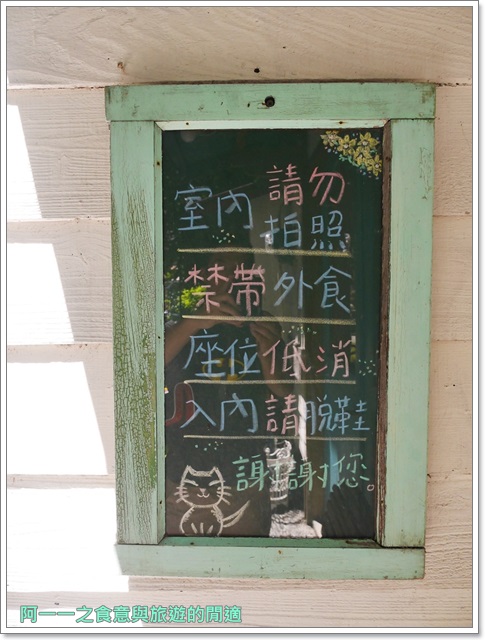 室內 請勿
拍照
禁帶外食
座位低消
入內請脫鞋
謝謝您。
阿一一之食意與旅遊的閒適